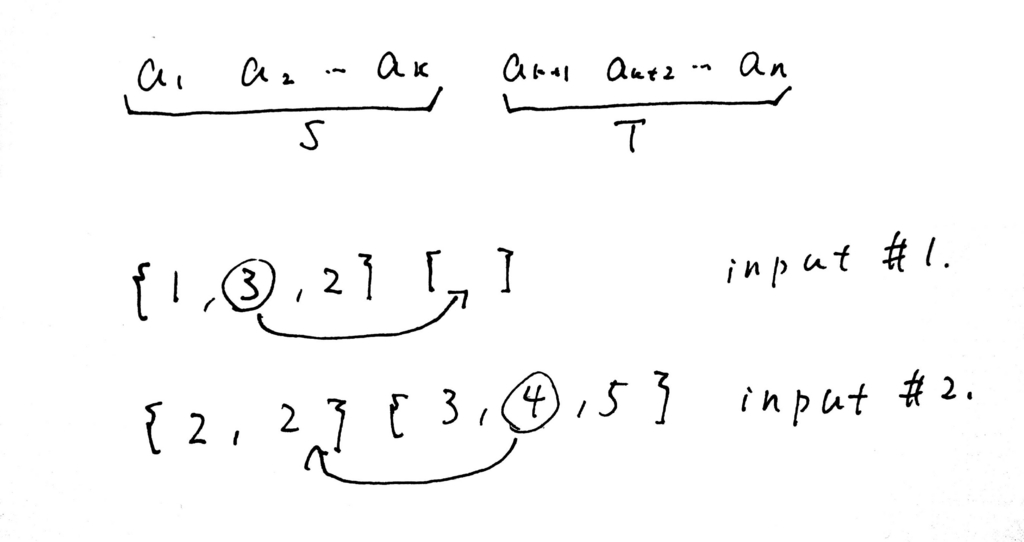 a₁ a₂ ... aₖ aₖ₊₁ aₖ₊₂ ... aₙ
S T
{ 1, 3, 2 } [ ] input #1.
{ 2, 2 } { 3, 4, 5 } input #2.